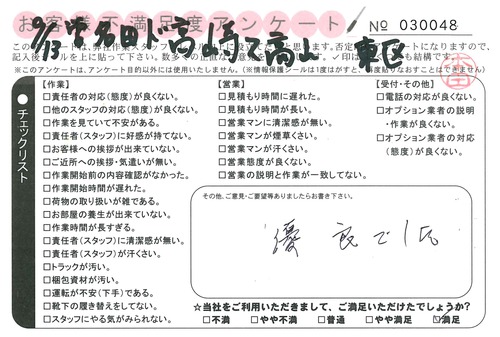 お客様不満足度アンケート
No 030048
9/13
東区
(このアンケートは目的以外には使用いたしません。(情報保護シールは1度はがすと、再度貼りなおすことはできません)
チェックリスト
【作業】
□責任者の対応(態度)が良くない。
□他のスタッフの対応(態度)が良くない。
□作業を見ていて不安がある。
□責任者(スタッフ)に好感が持てない。
□お客様への挨拶が出来ていない。
□ご近所への挨拶・気遣いが無い。
□作業開始前の内容確認がなかった。
□作業開始時間が遅れた。
□荷物の取り扱いが雑である。
□お部屋の養生が出来ていない。
□作業時間が長すぎる。
□責任者(スタッフ)に清潔感が無い。
□責任者(スタッフ)が汗くさい。
□トラックが汚い。
□梱包資材が汚い。
□運転が不安(下手)である。
□靴下の履き替えをしてない。
□スタッフにやる気がみられない。
【営業】
□見積もり時間に遅れた。
□見積もり時間が長い。
□営業マンに清潔感が無い。
□営業マンが煙草くさい。
□営業マンが汗くさい。
□営業態度が良くない。
□営業の説明と作業が一致してない。
【受付・その他】
□電話の対応が良くない。
□オプション業者の説明
・作業が良くない。
□オプション業者の対応
(態度)が良くない。
その他、ご意見・ご要望等ありましたらお書き下さい。
優良でした
☆当社をご利用いただきまして、ご満足いただけたでしょうか?
□不満 □やや不満 □普通 □やや満足 ☑満足